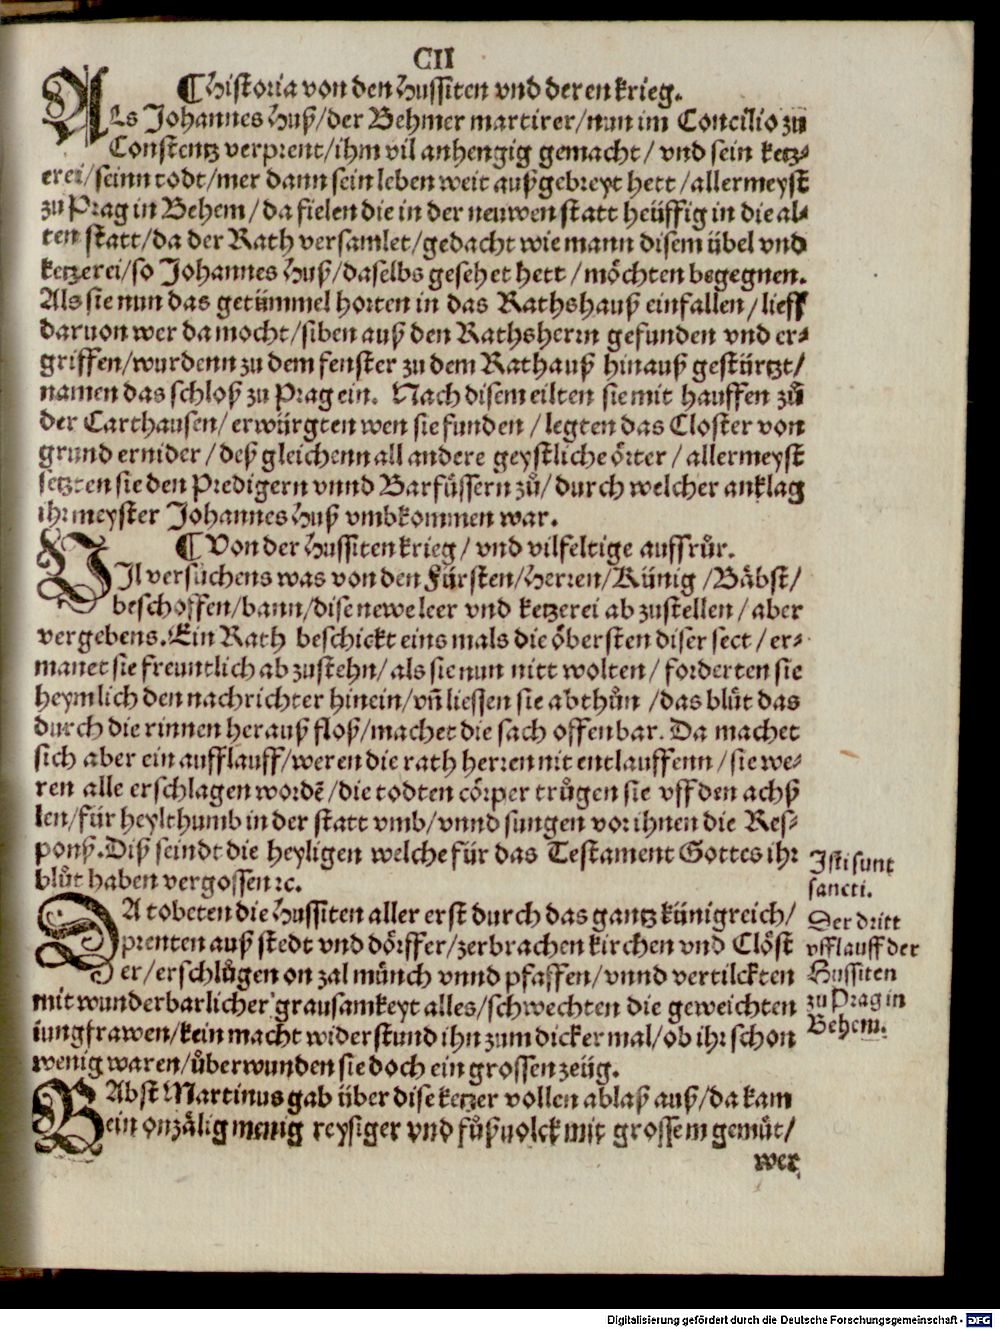 CII
¶ Historia von den Hussiten vnd deren krieg.
ALs Johannes Huß/der Behmer martirer/nun im Concilio zů
Constentz verprent/ihm vil anhengig gemacht/ vnd sein ketz⸗
erei/seinn todt/mer dann sein leben weit außgebreyt hett/allermeyst
zu Prag in Behem/da fielen die in der neuwen statt heüffig in die al⸗
ten statt/da der Rath versamlet/gedacht wie mann disem übel vnd
ketzerei/so Johannes Huß/daselbs gesehet hett/möchten begegnen.
Als sie nun das getümmel horten in das Rathshauß einfallen/lieff
daruon wer da mocht/siben auß den Rathsherrn gefunden vnd er⸗
griffen/wurdenn zu dem fenster zu dem Rathauß hinauß gestürtzt/
namen das schloß zu Prag ein. Nach disem eilten sie mit hauffen zů
der Carthausen/erwürgten wen sie funden/legten das Closter von
grund ernider/deß gleichenn all andere geystliche örter/allermeyst
setzten sie den Predigern vnnd Barfüssern zů/durch welcher anklag
ihr meyster Johannes Huß vmbkommen war.
¶ Von der Hussiten krieg/ vnd vilfeltige auffrůr.
VIl versůchens was von den Fürsten/Herren/Künig/Bäbst/
beschoffen/bann/dise newe leer vnd ketzerei ab zustellen/aber
vergebens. Ein Rath beschickt eins mals die öbersten diser sect/er⸗
manet sie freuntlich ab zustehn/als sie nun nitt wolten/forderten sie
heymlich den nachrichter hinein/vñ liessen sie abthůn/das blůt das
durch die rinnen herauß floß/machet die sach offenbar. Da machet
sich aber ein aufflauff/weren die rath herren nit entlauffenn/sie we⸗
ren alle erschlagen wordẽ/die todten cörper trůgen sie vff den achß
len/für heylthumb in der statt vmb/vnnd sungen vor ihnen die Res⸗
ponß. Diß seindt die heyligen welche für das Testament Gottes ihr
blůt haben vergossen ꝛc.
Isti sunt
sancti.
DA tobeten die Hussiten aller erst durch das gantz künigreich/
prenten auß stedt vnd dörffer/zerbrachen kirchen vnd Clöst
er/erschlůgen on zal münch vnnd pfaffen/vnnd vertilckten
mit wunderbarlicher grausamkeyt alles/schwechten die geweichten
iungfrawen/kein macht widerstund ihn zum dicker mal/ob ihr schon
wenig waren/überwunden sie doch ein grossen zeüg.
Der dritt
vfflauff der
Hussiten
zu Prag in
Behem.
BAbst Martinus gab über dise ketzer vollen ablaß auß/da kam
ein onzälig menig reysiger vnd fůßuolck mit grossem gemůt/
wer
Digitalisierung gefördert durch die Deutsche Forschungsgemeinschaft - DFG